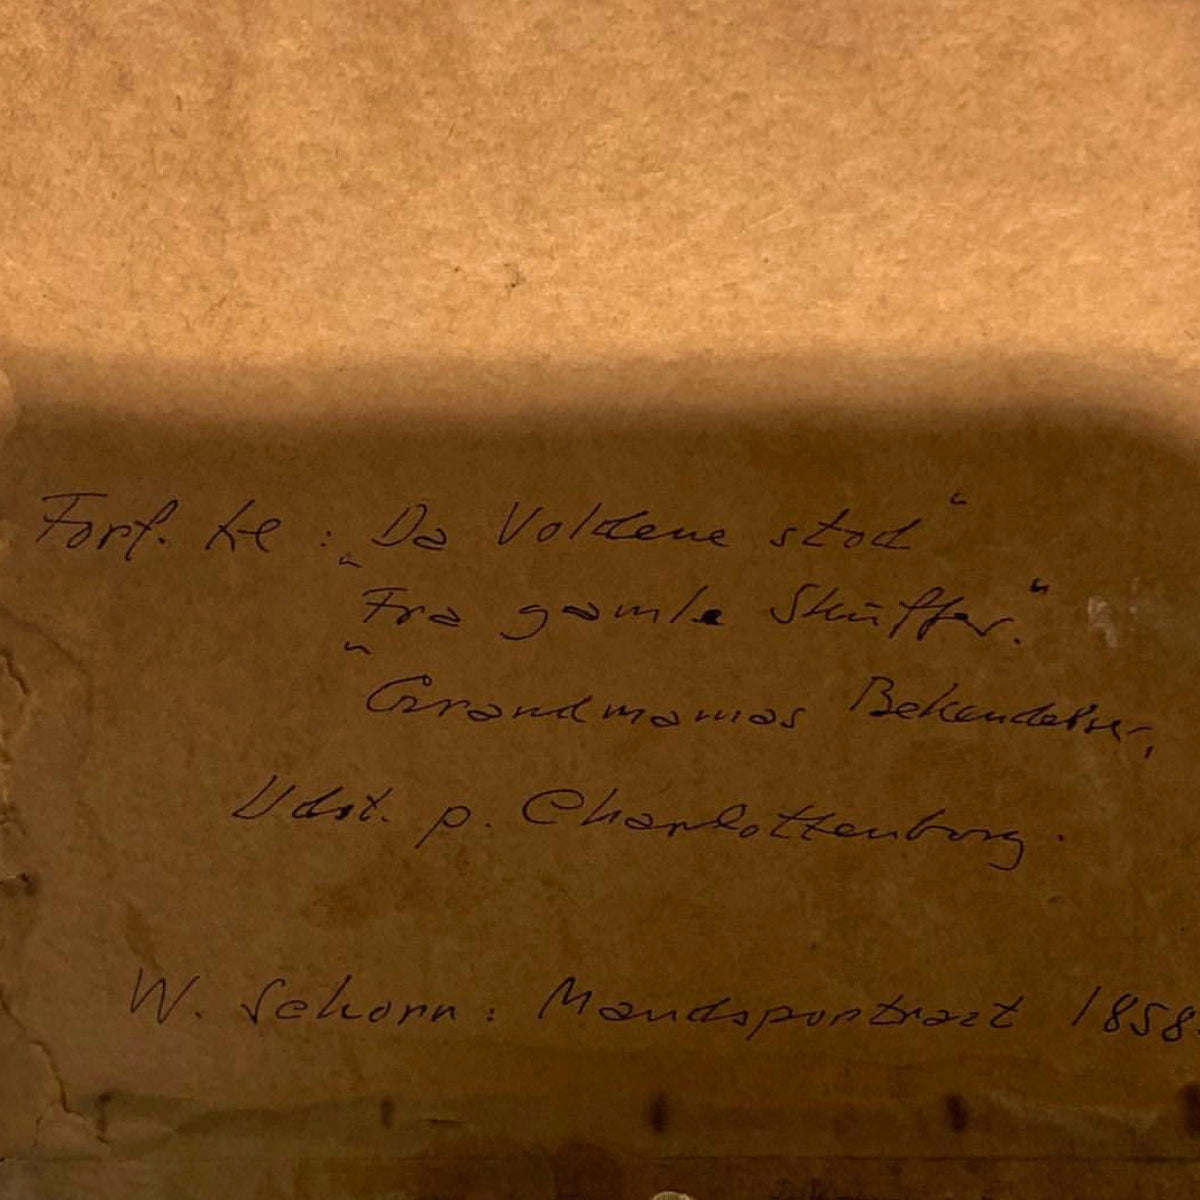 Forf. til : "Da Voldene stod"
"Fra gamle Skuffer."
"Grandmamas Bekendelser,
Udst. p. Charlottenborg.
W. Schorn : Mandsportræt 1858